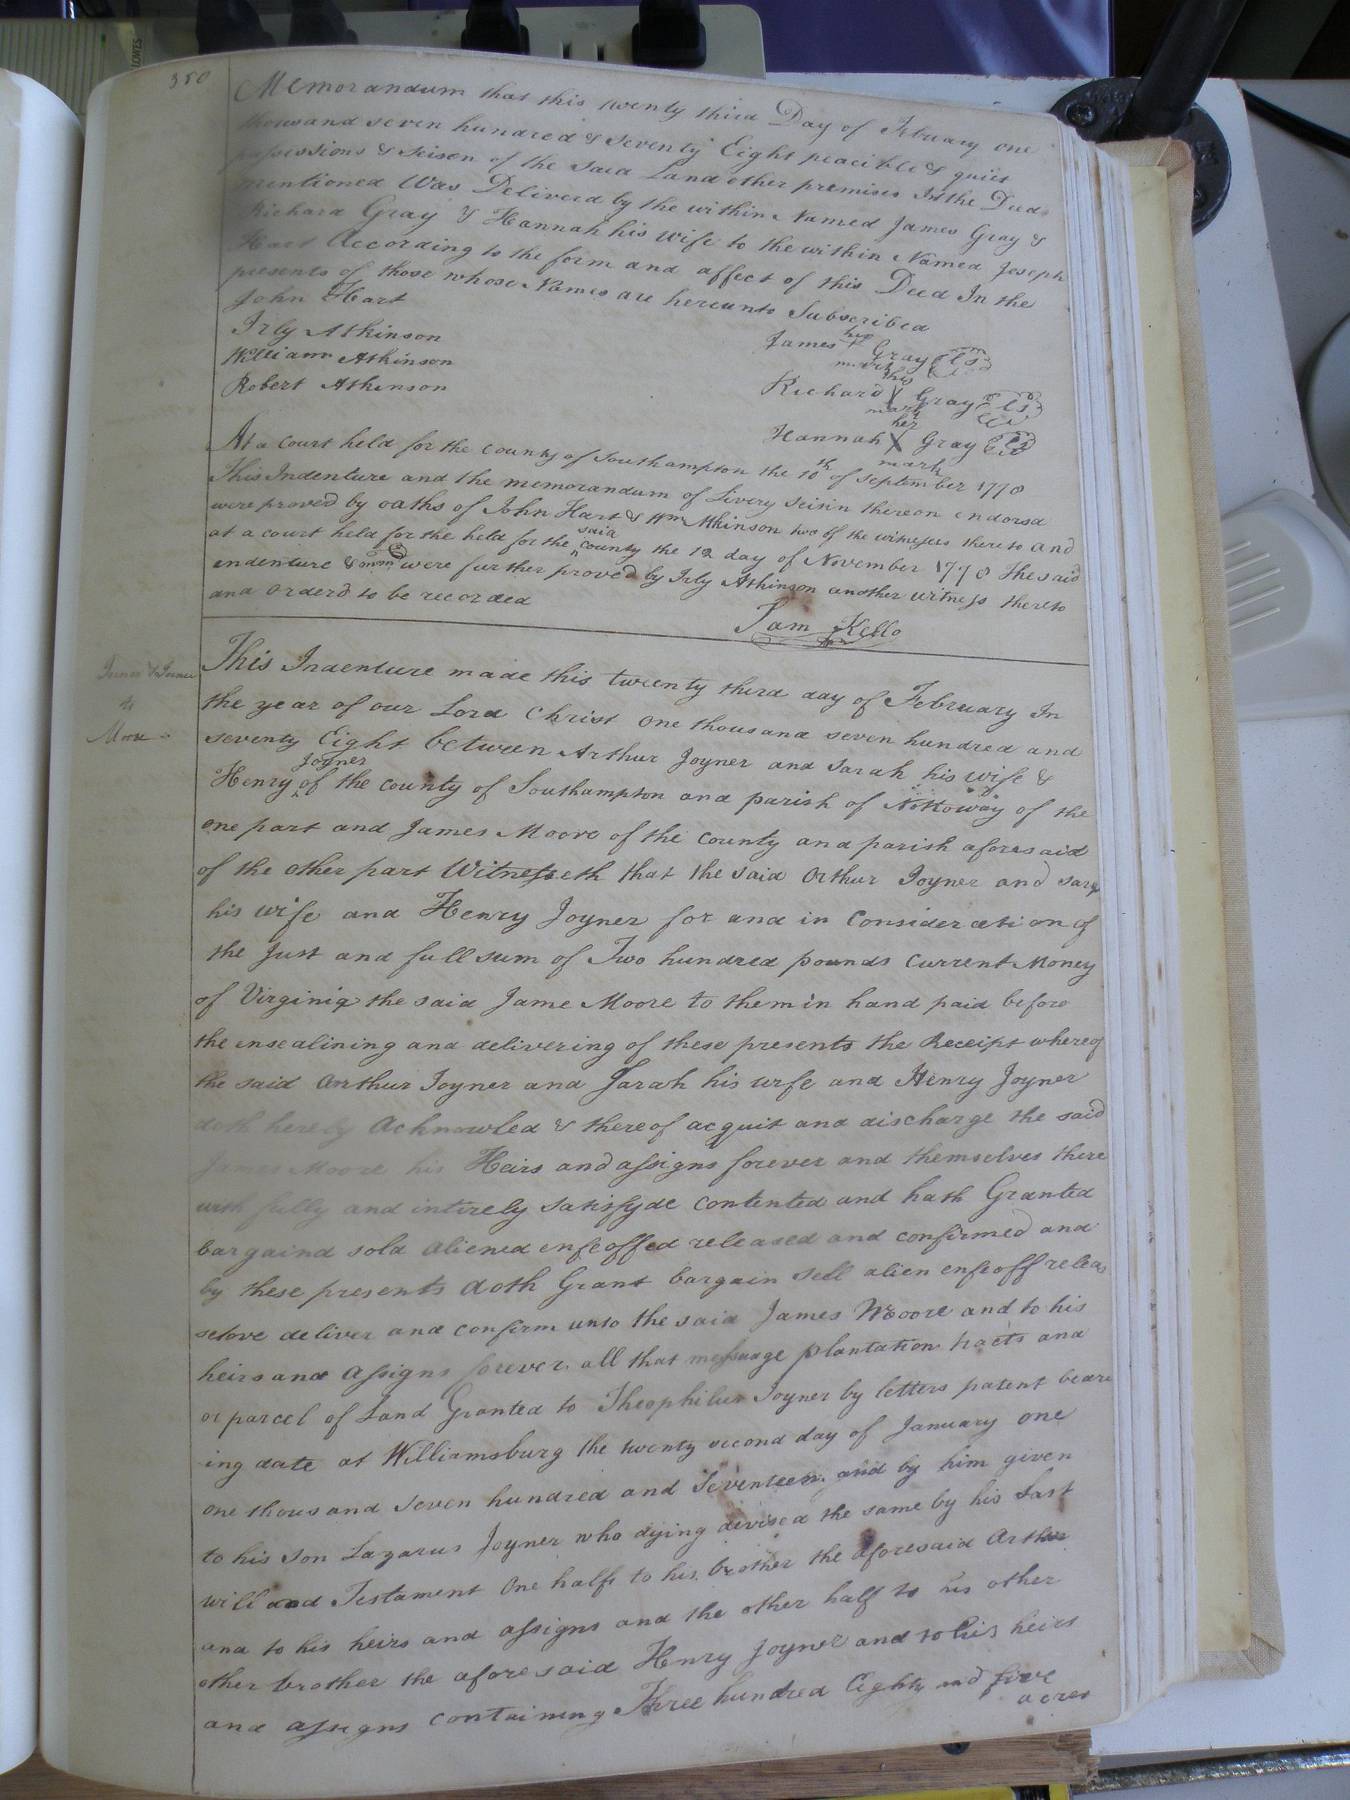 350
Memorandum that this twenty third Day of February one
thousand seven hundred & seventy Eight peacible & quiet
possessions & Seisen of the said Land other premises In the Deed
mentioned Was Deliverd by the within Named James Gray &
Richard Gray & Hannah his Wife to the within Named Joseph
Hart According to the form and affect of this Deed In the
presents of those whose Names are hereunto Subscribed
John Hart
Irby Atkinson
William Atkinson
Robert Atkinson
his
James + Gray Ls
mark
his
Richard X Gray Ls
mark
her
Hannah X Gray Ls
mark
At a court held for the county of Southampton the 10th of September 1778
This Indenture and the memorandum of Livery Seisin thereon endorsd
were proved by oaths of John Hart & Wm Atkinson two of the witnesses thereto and
at a court held for the held for the said county the 12 day of November 1778 The said
endenture & were further proved by Irby Atkinson another witness thereto
and Orderd to be recorded
Sam Kello
to
Moore
This Indenture made this twenty third day of February In
the year of our Lord Christ one thousand seven hundred and
seventy Eight between Arthur Joyner and Sarah his wife &
Henry Joyner of the county of Southampton and parish of Nottoway of the
one part and James Moore of the county and parish aforesaid
of the other part Witnesseth that the said Arthur Joyner and Sarah
his wife and Henry Joyner for and in Consideration of
the Just and full sum of Two hundred pounds Current Money
of Virginia the said Jame Moore to them in hand paid before
the insealining and delivering of these presents the Receipt whereof
the said Arthur Joyner and Sarah his wife and Henry Joyner
doth hereby Acknowled & thereof acquit and discharge the said
James Moore his Heirs and assigns forever and themselves there
with fully and intirely satisfyde contented and hath Granted
bargaind sold aliened enfeoffed released and confirmed and
by these presents doth Grant bargain sell alien enfeoff releas
deliver and confirm unto the said James Moore and to his
heirs and Assigns forever all that messuage plantation tracts and
or parcel of Land Granted to Theophilus Joyner by letters patent beare
ing date at Williamsburg the twenty second day of January one
one thousand seven hundred and Seventeen and by him given
to his son Lazarus Joyner who dying devised the same by his Last
will and Testament One halfe to his brother the aforesaid Arthur
and to his heirs and assigns and the other half to his other
other brother the aforesaid Henry Joyner and to his heirs
and assigns containing Three hundred Eighty and five
acres